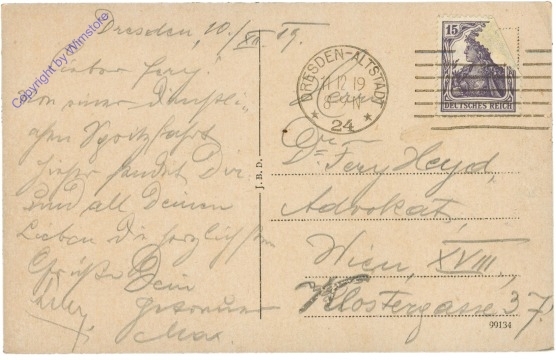 Copyright by Wimstore
Dresden, 10./XII 19.
Lieber Fery!
Von einer
hieher sendet Dir
und all Deinen
Lieben die herzlichsten
Grüße Dein
getreuer
Max.
J. B. D.
DRESDEN-ALTSTADT
11.12.19
24
15
DEUTSCHES REICH
Dr. Fery Heyd,
Advokat,
Wien, XVIII,
Klostergasse 37.
99134